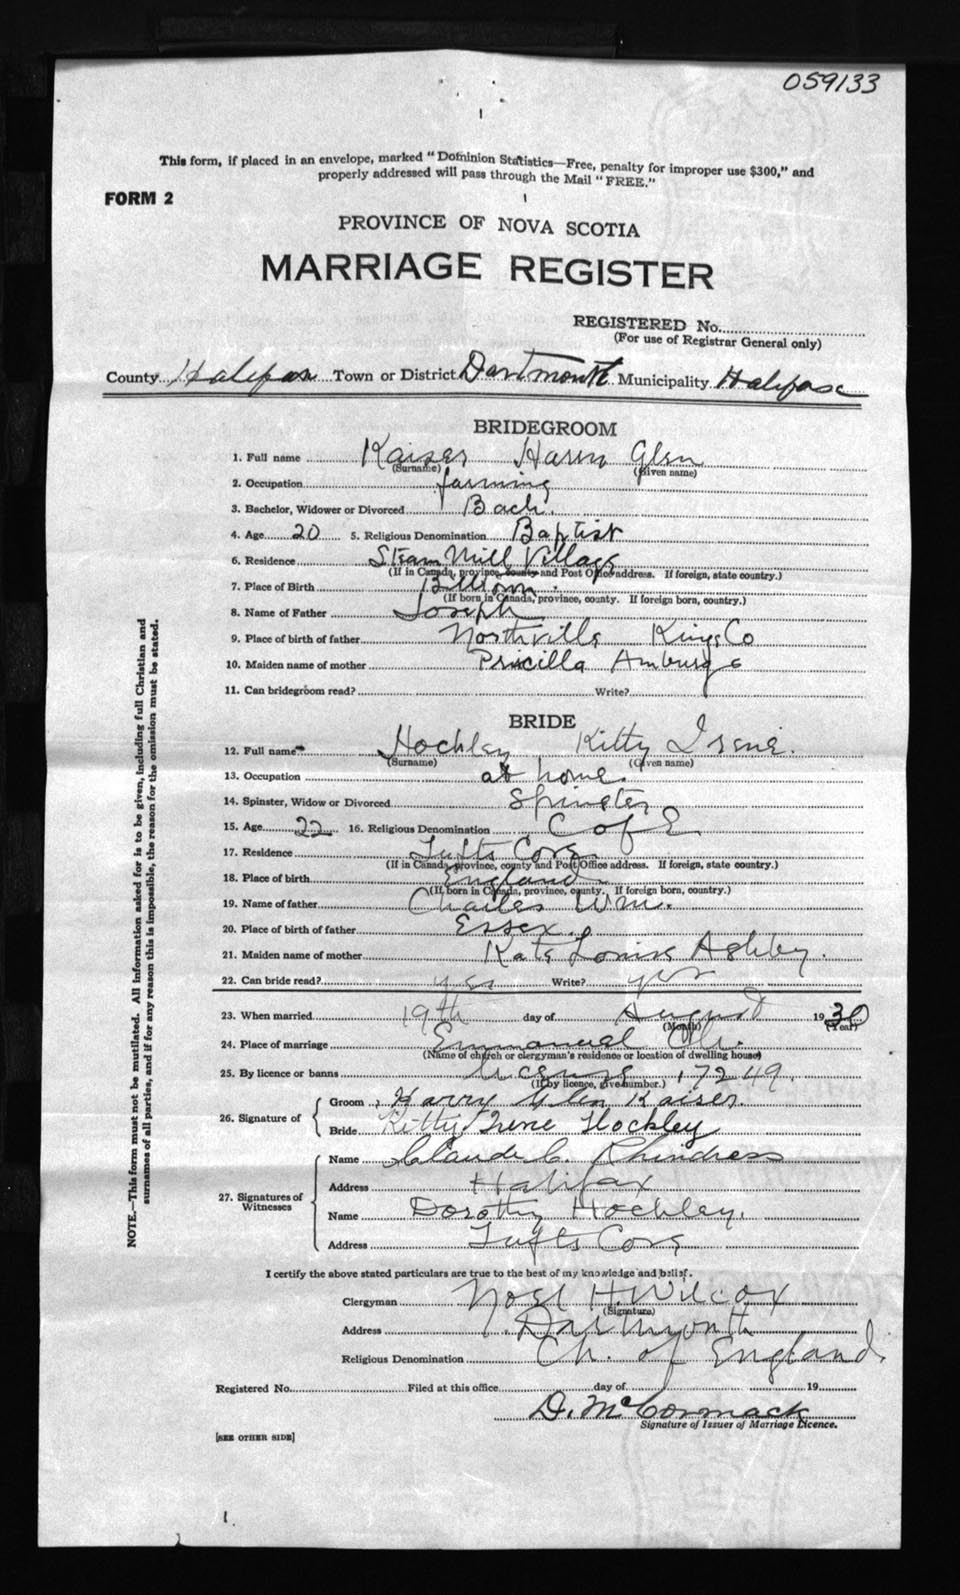 059133
This form, if placed in an envelope, marked "Dominion Statistics—Free, penalty for improper use $300," and
properly addressed will pass through the Mail "FREE."
FORM 2
PROVINCE OF NOVA SCOTIA
MARRIAGE REGISTER
REGISTERED No.
(For use of Registrar General only)
County Halifax Town or District Dartmouth Municipality Halifax
BRIDEGROOM
1. Full name Kaiser Harry Glen
(Surname) (Given name)
2. Occupation farming
3. Bachelor, Widower or Divorced Bach.
4. Age 20 5. Religious Denomination Baptist
6. Residence Steam Mill Village
(If in Canada, province, county and Post Office address. If foreign, state country.)
7. Place of Birth Billtown.
(If born in Canada, province, county. If foreign born, country.)
8. Name of Father Joseph
9. Place of birth of father Northville Kings Co
10. Maiden name of mother Priscilla
11. Can bridegroom read? Write?
BRIDE
12. Full name Hockley Kitty Irene.
(Surname) (Given name)
13. Occupation at home.
14. Spinster, Widow or Divorced Spinster
15. Age 22 16. Religious Denomination C of E
17. Residence Tufts Cove
(If in Canada, province, county and Post Office address. If foreign, state country.)
18. Place of birth England
(If born in Canada, province, county. If foreign born, country.)
19. Name of father Charles Wm.
20. Place of birth of father Essex.
21. Maiden name of mother Kate Louise Ashby.
22. Can bride read? yes Write? yes
23. When married 19th day of August 1930
(Month) (Year)
24. Place of marriage Emmanuel Ch.
(Name of church or clergyman's residence or location of dwelling house)
25. By licence or banns License 17249.
(If by licence, give number.)
26. Signature of
Groom Harry Glen Kaiser.
Bride Kitty Irene Hockley
27. Signatures of Witnesses
Name Claude C. Rhindress
Address Halifax
Name Dorothy Hockley.
Address Tufts Cove
I certify the above stated particulars are true to the best of my knowledge and belief.
Clergyman Noel H. Wilcox
(Signature)
Address Dartmouth
Religious Denomination Ch. of England.
Registered No. Filed at this office day of 19
D. McCormack
Signature of Issuer of Marriage Licence.
[SEE OTHER SIDE]
NOTE.—This form must not be mutilated. All information asked for is to be given, including full Christian and
surnames of all parties, and if for any reason this is impossible, the reason for the omission must be stated.